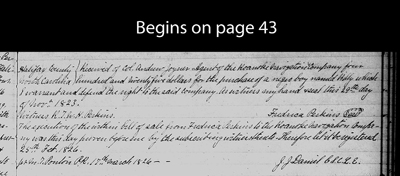 Begins on page 43
Halifax County Received of Col. Andrew Joyner Agent of the Roanoke Navigation Company four
North Carolina hundred and twenty five dollars for the purchase of a negro boy named which
I warrant and defend the right to the said company. As witness my hand & seal this 28th day
of Novr. 1823.
Witness R. J. H. Perkins. Fredrick Perkins Seal
The execution of the within bill of sale from Fredrick Perkins to the Roanoke Navigation Compa-
ny was this day proven before me by the subscribing witness thereto. Therefore let it be registered
25th Feb. 1824.
15th March 1824 — J. J. Daniel